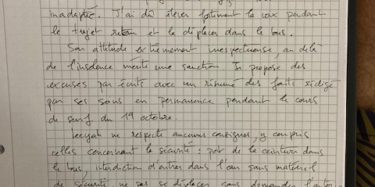 inadaptée. J'ai dû élever fortement la voix pendant
le trajet retour et le déplacer dans le bus.
Son attitude extrêmement irrespectueuse au delà
de l'insolence mérite une sanction. Je propose des
excuses par écrit avec un résumé des faits rédigé
par ses soins en permanence pendant le cours
de surf du 19 octobre.
ne respecte aucune consigne, y compris
celles concernant la sécurité : port de la ceinture dans
le bus, interdiction d'entrer dans l'eau sans matériel
de sécurité, ne pas se déplacer sans demander